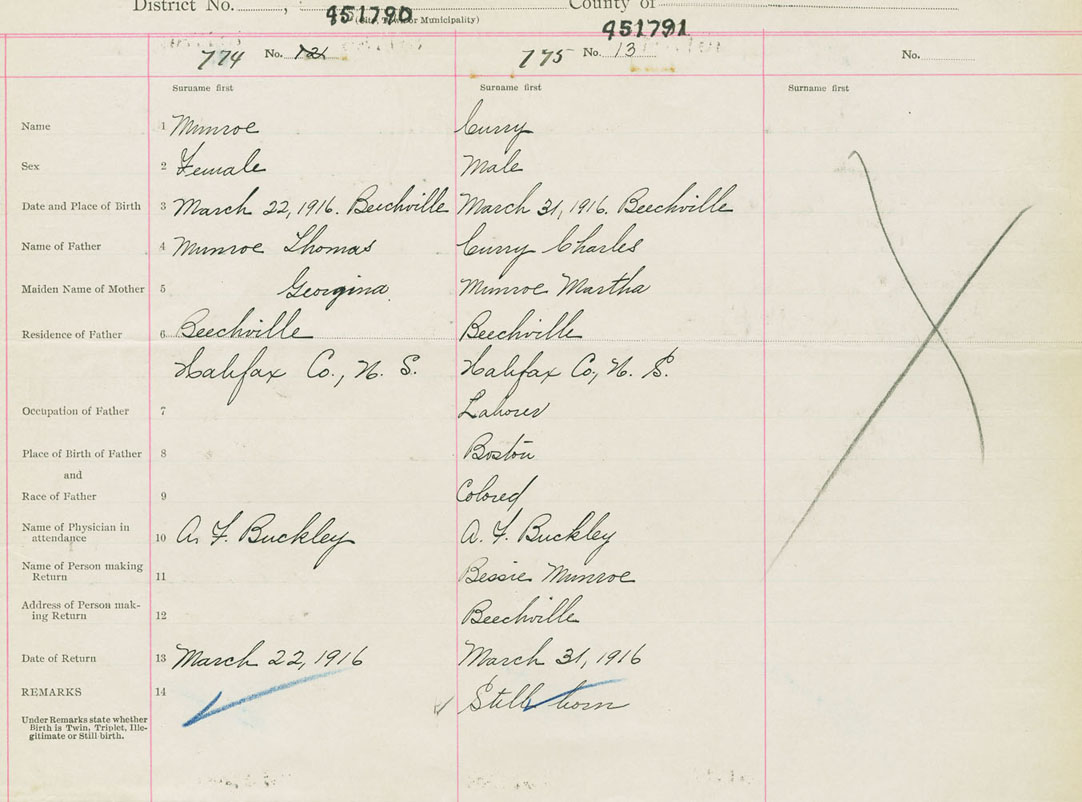 District No. , County of
451790 (City, Town or Municipality)
451791
774 No. 12 775 No. 13 No.
Surname first Surname first Surname first
Name 1 Munroe Curry
Sex 2 Female Male
Date and Place of Birth 3 March 22, 1916. Beechville March 31, 1916. Beechville
Name of Father 4 Munroe Thomas Curry Charles
Maiden Name of Mother 5 Georgina Munroe Martha
Residence of Father 6 Beechville Beechville
Halifax Co., N. S. Halifax Co., N. S.
Occupation of Father 7 Laborer
Place of Birth of Father 8 Boston
and
Race of Father 9 Colored
Name of Physician in
attendance 10 A. F. Buckley A. F. Buckley
Name of Person making
Return 11 Bessie Munroe
Address of Person mak-
ing Return 12 Beechville
Date of Return 13 March 22, 1916 March 31, 1916
REMARKS 14 Still born
Under Remarks state whether
Birth is Twin, Triplet, Ille-
gitimate or Still birth.